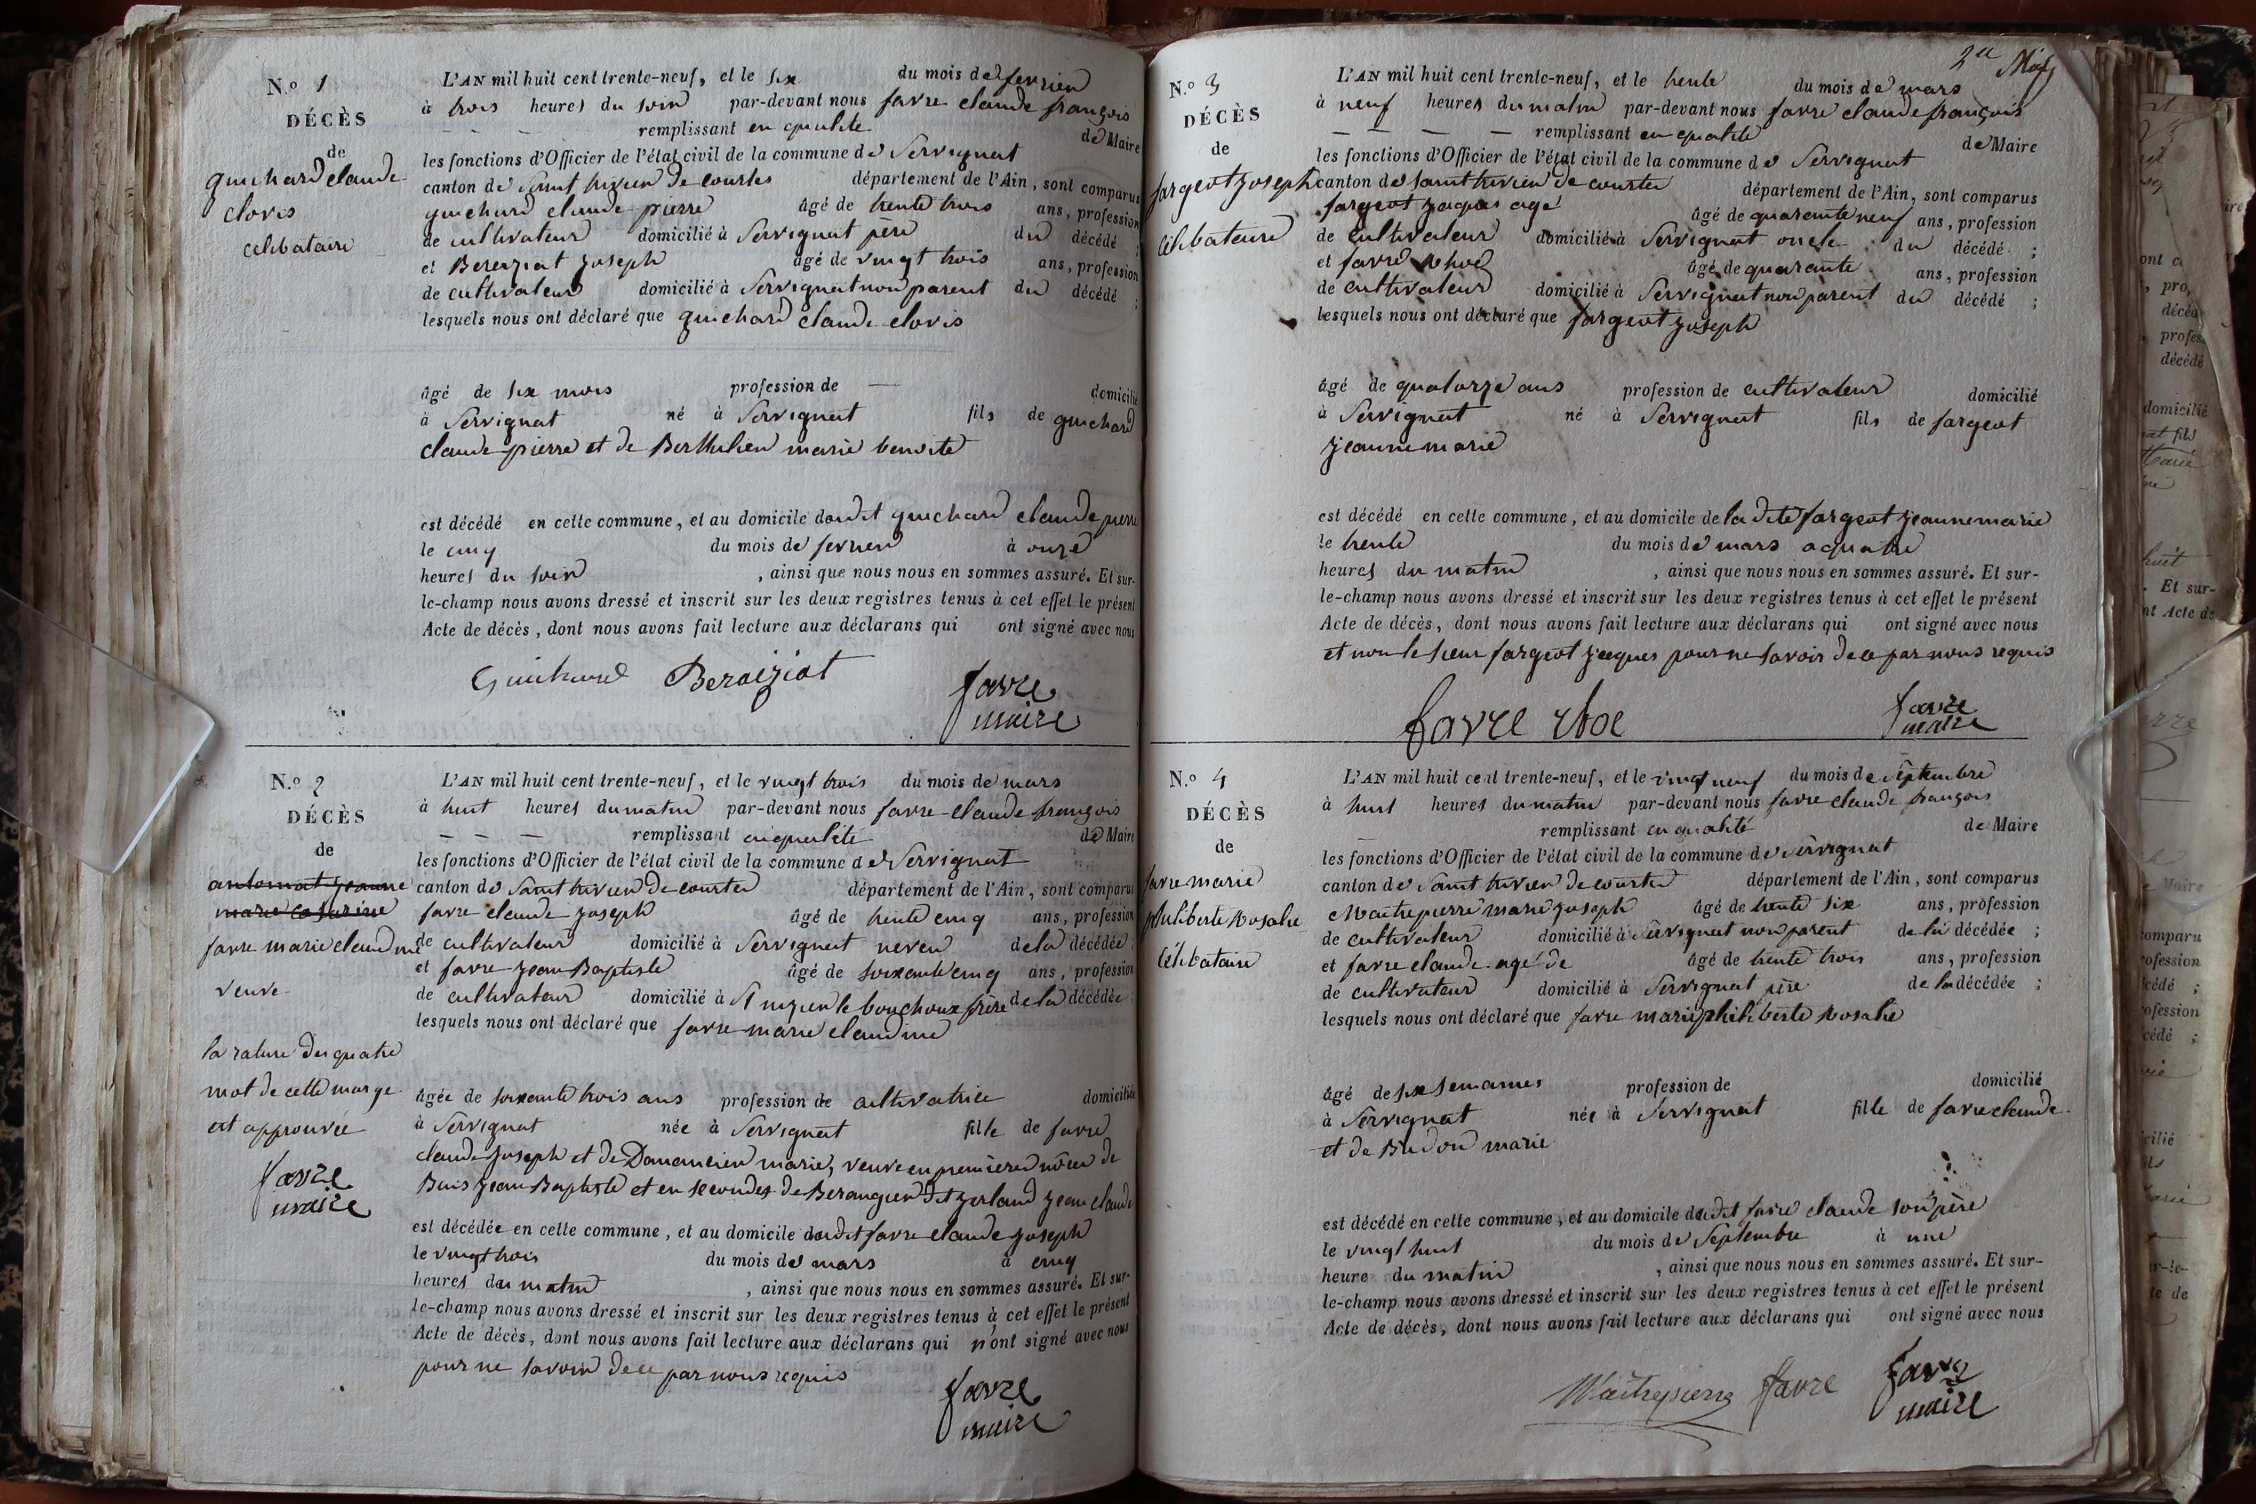 N.o 1
DÉCÈS
de
guichard claude
clovis
celibataire
L'AN mil huit cent trente-neuf, et le six du mois de fevrier
à trois heures du soir par-devant nous favre claude françois
remplissant en qualite de Maire
les fonctions d'Officier de l'état civil de la commune de Servignat
canton de saint trivier de courtes département de l'Ain, sont comparus
guichard claude pierre âgé de trente trois ans, profession
de cultivateur domicilié à Servignat père du décédé ;
et Bereiziat joseph âgé de vingt trois ans, profession
de cultivateur domicilié à Servignat non parent du décédé ;
lesquels nous ont déclaré que guichard claude clovis
âgé de six mois profession de — domicilié
à Servignat né à Servignat fils de guichard
claude pierre et de Berthelien marie benoite
est décédé en cette commune, et au domicile dudit guichard claude pierre
le cinq du mois de fevrier à onze
heures du soir , ainsi que nous nous en sommes assuré. Et sur-
le-champ nous avons dressé et inscrit sur les deux registres tenus à cet effet le présent
Acte de décès, dont nous avons fait lecture aux déclarans qui ont signé avec nous
Guichard Bereiziat favre
maire
N.o 2
DÉCÈS
de
favre marie claudine
veuve
la rature des quatre
mot de cette marge
est approuvée
favre
maire
L'AN mil huit cent trente-neuf, et le vingt trois du mois de mars
à huit heures du matin par-devant nous favre claude françois
remplissant en qualité de Maire
les fonctions d'Officier de l'état civil de la commune de Servignat
canton de Saint trivier de courtes département de l'Ain, sont comparus
favre claude joseph âgé de trente cinq ans, profession
de cultivateur domicilié à Servignat neveu de la décédée ;
et favre jean Baptiste âgé de soixante cinq ans, profession
de cultivateur domicilié à St nizier le bouchoux frère de la décédée
lesquels nous ont déclaré que favre marie claudine
âgée de soixante trois ans profession de cultivatrice domiciliée
à Servignat née à Servignat fille de favre
claude joseph et de Danancier marie, veuve en premieres nôces de
Buis jean Baptiste et en secondes de Berangier dit jerland jean claude
est décédée en cette commune, et au domicile dudit favre claude joseph
le vingt trois du mois de mars à cinq
heures du matin , ainsi que nous nous en sommes assuré. Et sur-
le-champ nous avons dressé et inscrit sur les deux registres tenus à cet effet le présent
Acte de décès, dont nous avons fait lecture aux déclarans qui n'ont signé avec nous
pour ne savoir de ce par nous requis
favre
maire
N.o 3
DÉCÈS
de
fargeot joseph
Célibataire
L'AN mil huit cent trente-neuf, et le trente du mois de mars
à neuf heures du matin par-devant nous favre claude françois
remplissant en qualité de Maire
les fonctions d'Officier de l'état civil de la commune de Servignat
canton de saint trivier de courtes département de l'Ain, sont comparus
fargeot jaques agé âgé de quarante neuf ans, profession
de cultivateur domicilié à Servignat oncle du décédé ;
et favre âgé de quarante ans, profession
de cultivateur domicilié à Servignat non parent du décédé ;
lesquels nous ont déclaré que fargeot joseph
âgé de quatorze ans profession de cultivateur domicilié
à Servignat né à Servignat fils de fargeot
jeanne marie
est décédé en cette commune, et au domicile de la dite fargeot jeanne marie
le trente du mois de mars a quatre
heures du matin , ainsi que nous nous en sommes assuré. Et sur-
le-champ nous avons dressé et inscrit sur les deux registres tenus à cet effet le présent
Acte de décès, dont nous avons fait lecture aux déclarans qui ont signé avec nous
et non le sieur fargeot jacques pour ne savoir de ce par nous requis
favre favre
maire
N.o 4
DÉCÈS
de
favre marie
philiberte Rosalie
Célibataire
L'AN mil huit cent trente-neuf, et le vingt neuf du mois de septembre
à huit heures du matin par-devant nous favre claude françois
remplissant en qualité de Maire
les fonctions d'Officier de l'état civil de la commune de servignat
canton de saint trivier de courtes département de l'Ain, sont comparus
Maitrepierre marie joseph âgé de trente six ans, profession
de cultivateur domicilié à Servignat non parent de la décédée ;
et favre claude agé de âgé de trente trois ans, profession
de cultivateur domicilié à Servignat père de la décédée ;
lesquels nous ont déclaré que favre marie philiberte Rosalie
âgé de six semaines profession de domicilié
à Servignat née à Servignat fille de favre claude
et de Budon marie
est décédé en cette commune, et au domicile dudit favre claude son père
le vingt huit du mois de Septembre à une
heure du matin , ainsi que nous nous en sommes assuré. Et sur-
le-champ nous avons dressé et inscrit sur les deux registres tenus à cet effet le présent
Acte de décès, dont nous avons fait lecture aux déclarans qui ont signé avec nous
Maitrepierre favre favre
maire